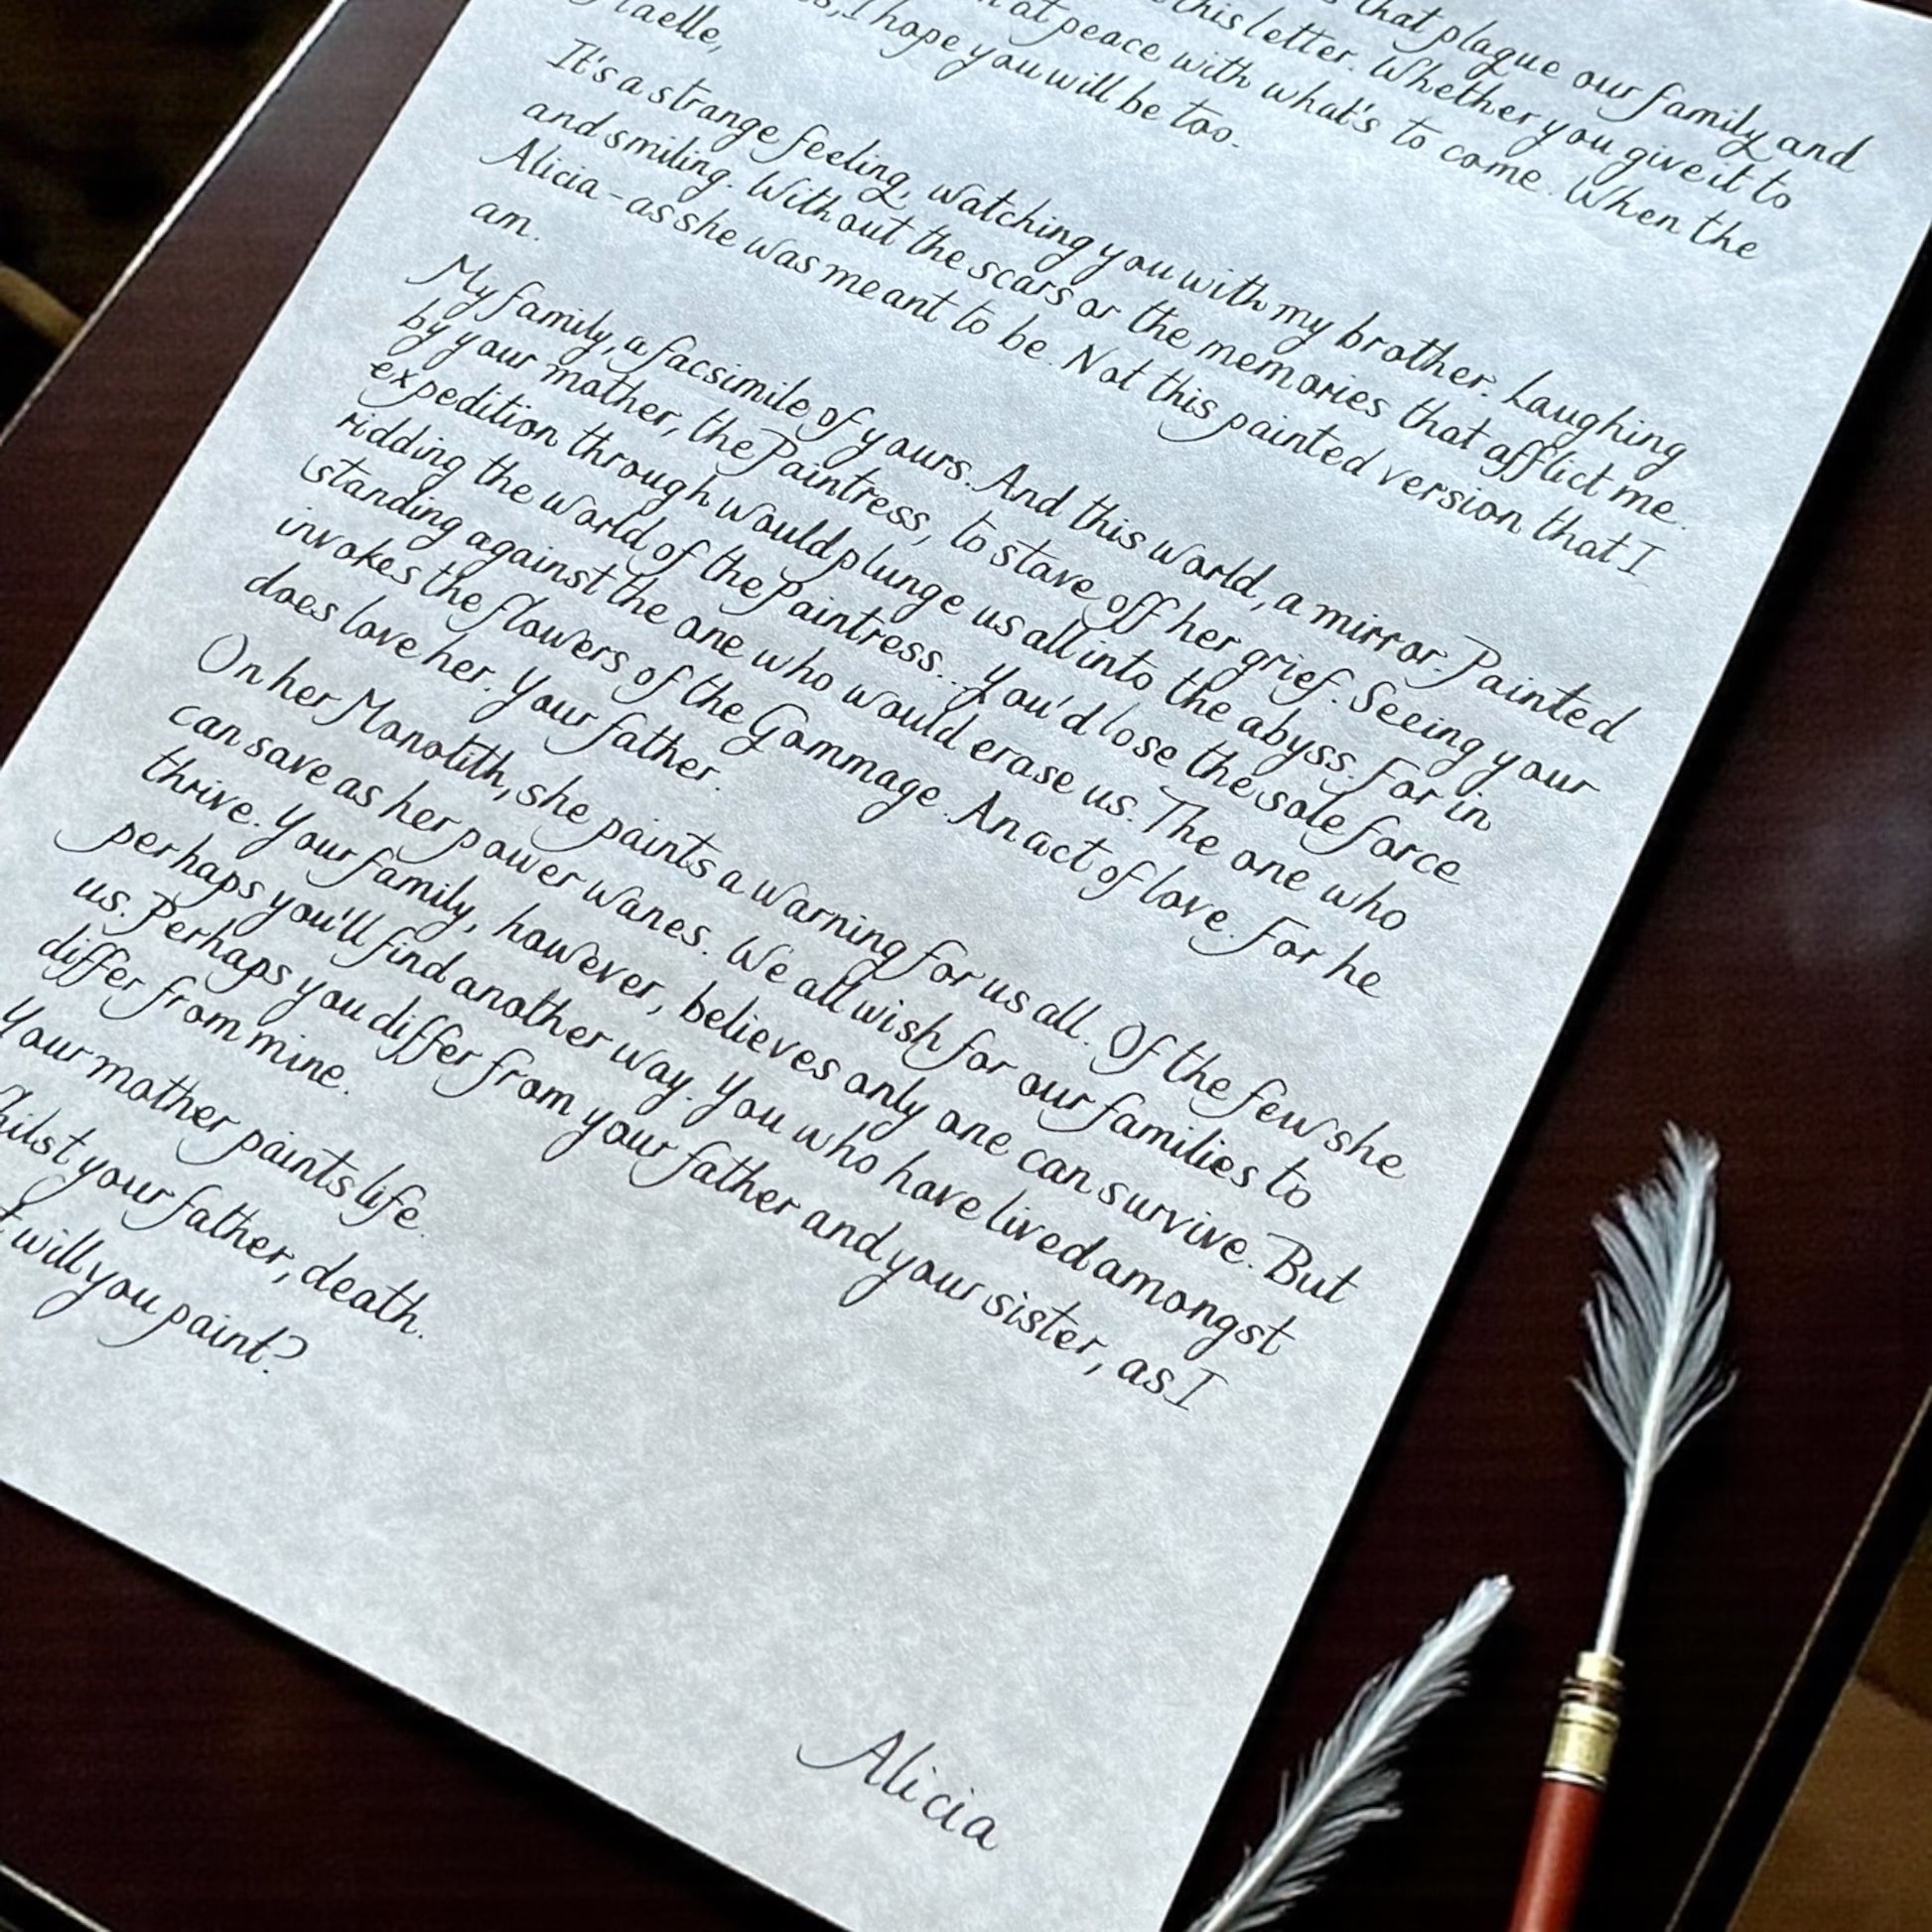 that plague our family and
this letter. Whether you give it to
at peace with what's to come. When the
I hope you will be too.
aelle,
It's a strange feeling, watching you with my brother. Laughing
and smiling. Without the scars or the memories that afflict me.
Alicia – as she was meant to be. Not this painted version that I
am.
My family, a facsimile of yours. And this world, a mirror. Painted
by your mother, the Paintress, to stave off her grief. Seeing your
expedition through would plunge us all into the abyss. For in
ridding the world of the Paintress... you'd lose the sole force
standing against the one who would erase us. The one who
invokes the flowers of the Gommage. An act of love. For he
does love her. Your father.
On her Monolith, she paints a warning for us all. Of the few she
can save as her power wanes. We all wish for our families to
thrive. Your family, however, believes only one can survive. But
perhaps you'll find another way. You who have lived amongst
us. Perhaps you differ from your father and your sister, as I
differ from mine.
Your mother paints life.
hilst your father, death.
will you paint?
Alicia